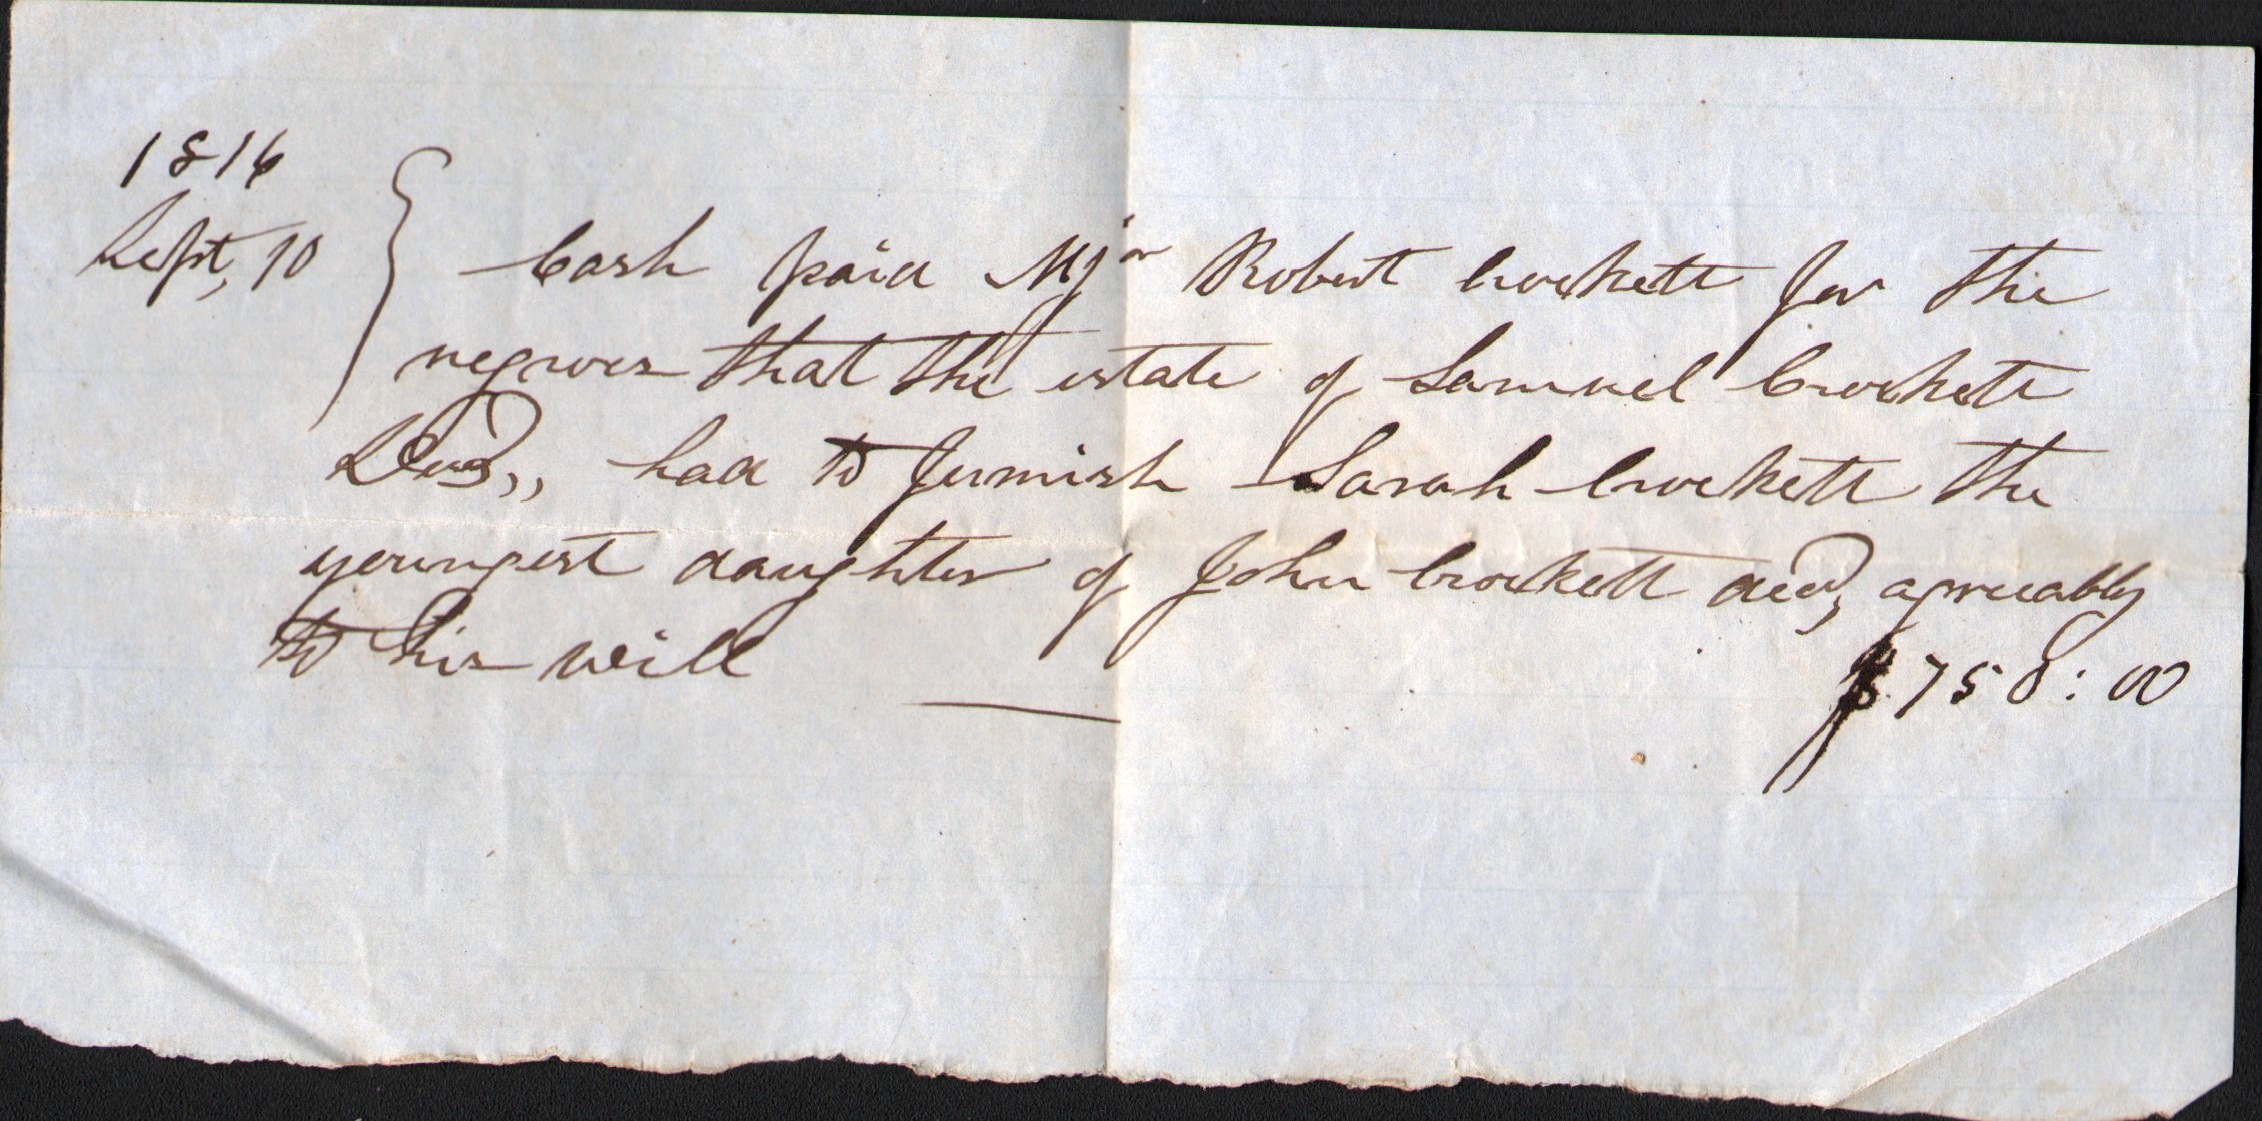 1816
Sept, 10 Cash paid Mjor Robert Crockett for the
negroes that the estate of Samuel Crockett
Decd,, had to furnish Sarah Crockett the
youngest daughter of John Crockett decd, agreeably
to his will
$750:00